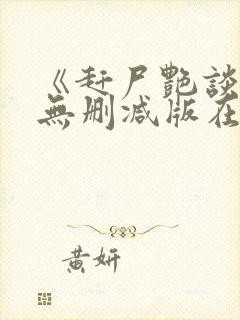 《赶尸艷談
無刪減版在
黄妍